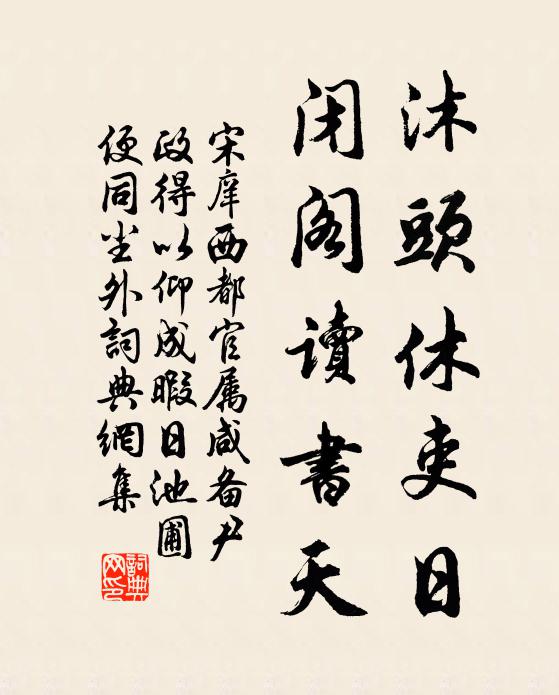 沐頭休吏日
閉閣讀書天
宋庠西都官属咸备尹
政得以仰成暇日池圃
便同尘外詞典網集
詞典
网印